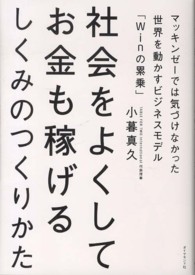 マッキンゼーでは気づけなかった
世界を動かすビジネスモデル
「Winの累乗」
小暮真久
社会をよくして
お金も稼げる
しくみのつくりかた
ダイヤモンド社